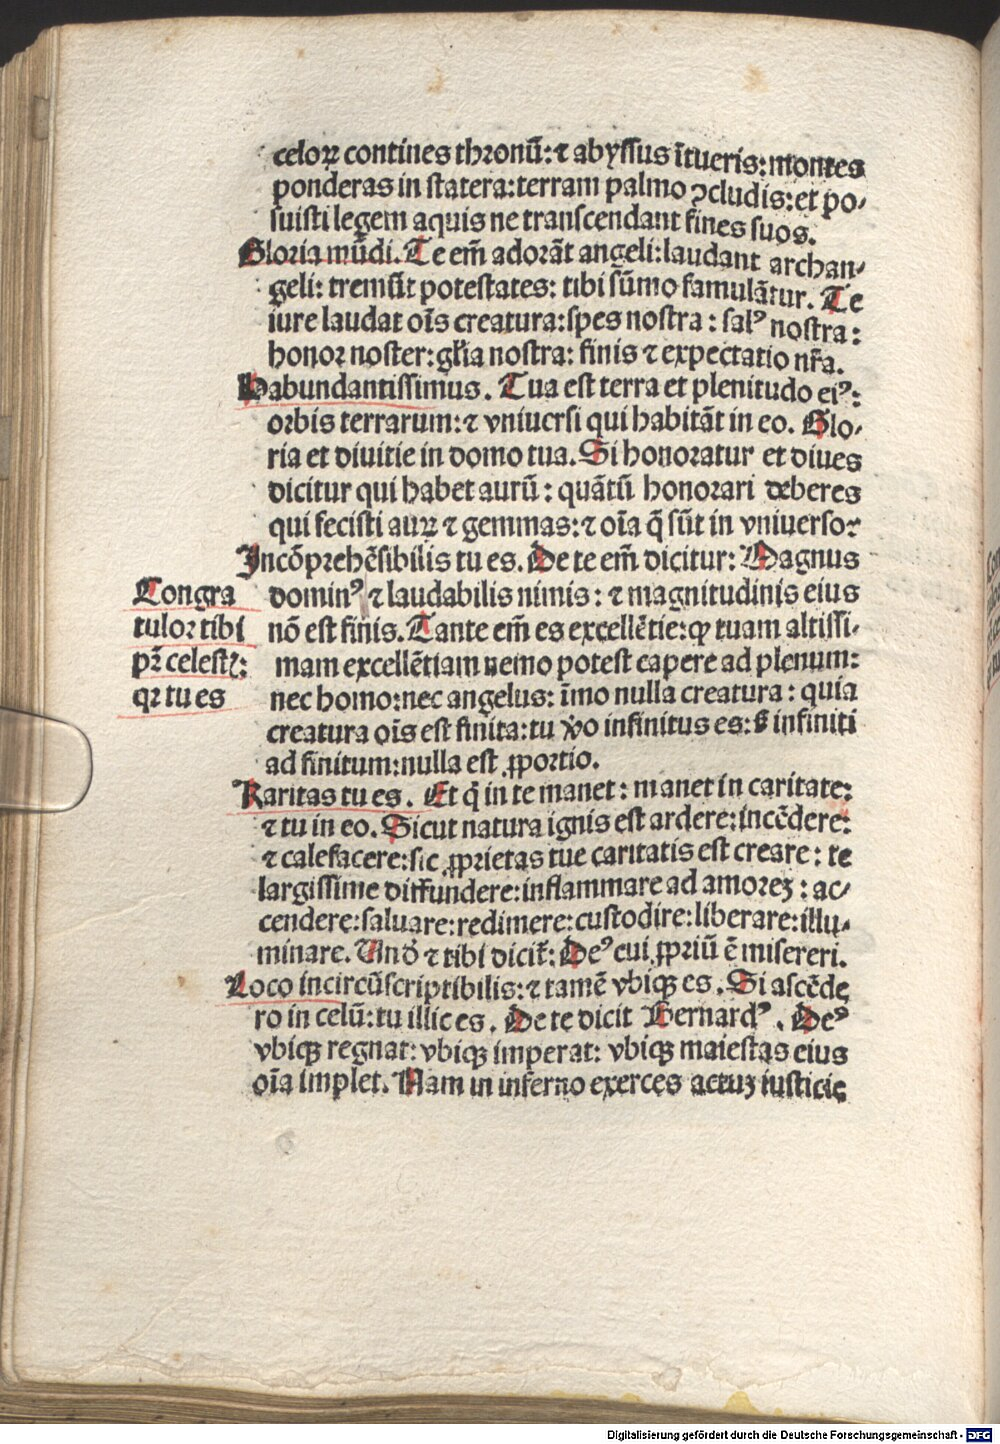 celoꝝ contines thronū: ⁊ abyssus ītueris: montes
ponderas in statera: terram palmo ꝯcludis: et po-
suisti legem aquis ne transcendant fines suos.
Gloria mūdi. Te em̄ adorāt angeli: laudant archan-
geli: tremūt potestates: tibi sūmo famulātur. Te
iure laudat oīs creatura: spes nostra: salꝰ nostra:
honor noster: gl̄ia nostra: finis ⁊ expectatio nr̄a.
Habundantissimus. Tua est terra et plenitudo eiꝰ:
orbis terrarum: ⁊ vniuersi qui habitāt in eo. Glo-
ria et diuitie in domo tua. Si honoratur et diues
dicitur qui habet aurū: quātū honorari deberes
qui fecisti auꝝ ⁊ gemmas: ⁊ oīa q̄ sūt in vniuerso?
Incōprehēsibilis tu es. De te em̄ dicitur: Magnus
dominꝰ ⁊ laudabilis nimis: ⁊ magnitudinis eius
nō est finis. Tante em̄ es excellētie: ꝙ tuam altissi-
mam excellētiam nemo potest capere ad plenum:
nec homo: nec angelus: īmo nulla creatura: quia
creatura oīs est finita: tu v̊o infinitus es: s̄ infiniti
ad finitum: nulla est ꝓportio.
Congra
tulor tibi
pr̄ celestꝭ:
qꝛ tu es
Karitas tu es. Et q̇ in te manet: manet in caritate:
⁊ tu in eo. Sicut natura ignis est ardere: incēdere:
⁊ calefacere: sic ꝓprietas tue caritatis est creare: te
largissime diffundere: inflammare ad amoreꝫ: ac-
cendere: saluare: redimere: custodire: liberare: illu-
minare. Vnd̄ ⁊ tibi dicit̄: Deꝰ cui ꝓpriū ē misereri.
Loco incircūscriptibilis: ⁊ tamē vbiqꝫ es. Si ascēde
ro in celū: tu illic es. De te dicit Bernardꝰ. Deꝰ
vbiqꝫ regnat: vbiqꝫ imperat: vbiqꝫ maiestas eius
oīa implet. Nam in inferno exerces actuꝫ iusticie
Digitalisierung gefördert durch die Deutsche Forschungsgemeinschaft - DFG